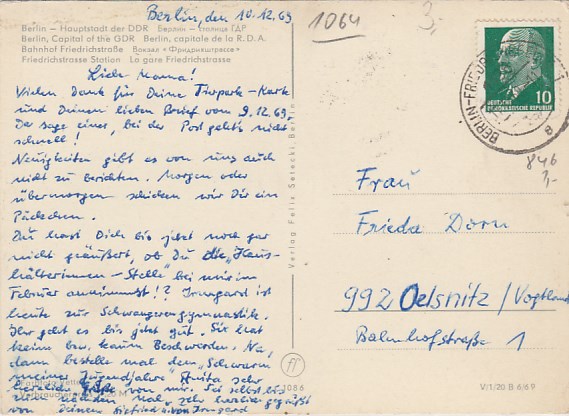 Berlin, den 10.12.69
1064
3,-
Berlin – Hauptstadt der DDR Берлин – столица ГДР
Berlin, Capital of the GDR Berlin, capitale de la R.D.A.
Bahnhof Friedrichstraße Вокзал «Фридрихштрассе»
Friedrichstrasse Station La gare Friedrichstrasse
Liebe Mama!
Vielen Dank für Deine Tierpark-Karte
und Deinen lieben Brief vom 9.12.69.
Da sage einer, bei der Post geht's nicht
schnell!
Neuigkeiten gibt es von uns auch
nicht zu berichten. Morgen oder
übermorgen schicken wir Dir ein
Päckchen.
Du hast Dich bis jetzt noch gar
nicht geäußert, ob Du die „Haus-
hälterinnen-Stelle" bei mir im
Februar annimmst!? Irmgard ist
heute zur Schwangerengymnastik.
Ihr geht es bis jetzt gut. Sie hat
keine bzw. kaum Beschwerden. Na,
dann bestelle mal dem „Schwarm
meiner Jugendjahre" Anita sehr
herzliche Grüße von mir. Sei selbst
vielen mal sehr herzlich gegrüßt
von Deinem Siegfried u. von Irmgard
Verlag Felix Setecki, Berlin
1086
DEUTSCHE
DEMOKRATISCHE REPUBLIK
10
BERLIN-FRIEDR
846
3,-
Frau
Frieda Dorn
992 Oelsnitz/Vogtland
Bahnhofstraße 1
V/1/20 B 6/69